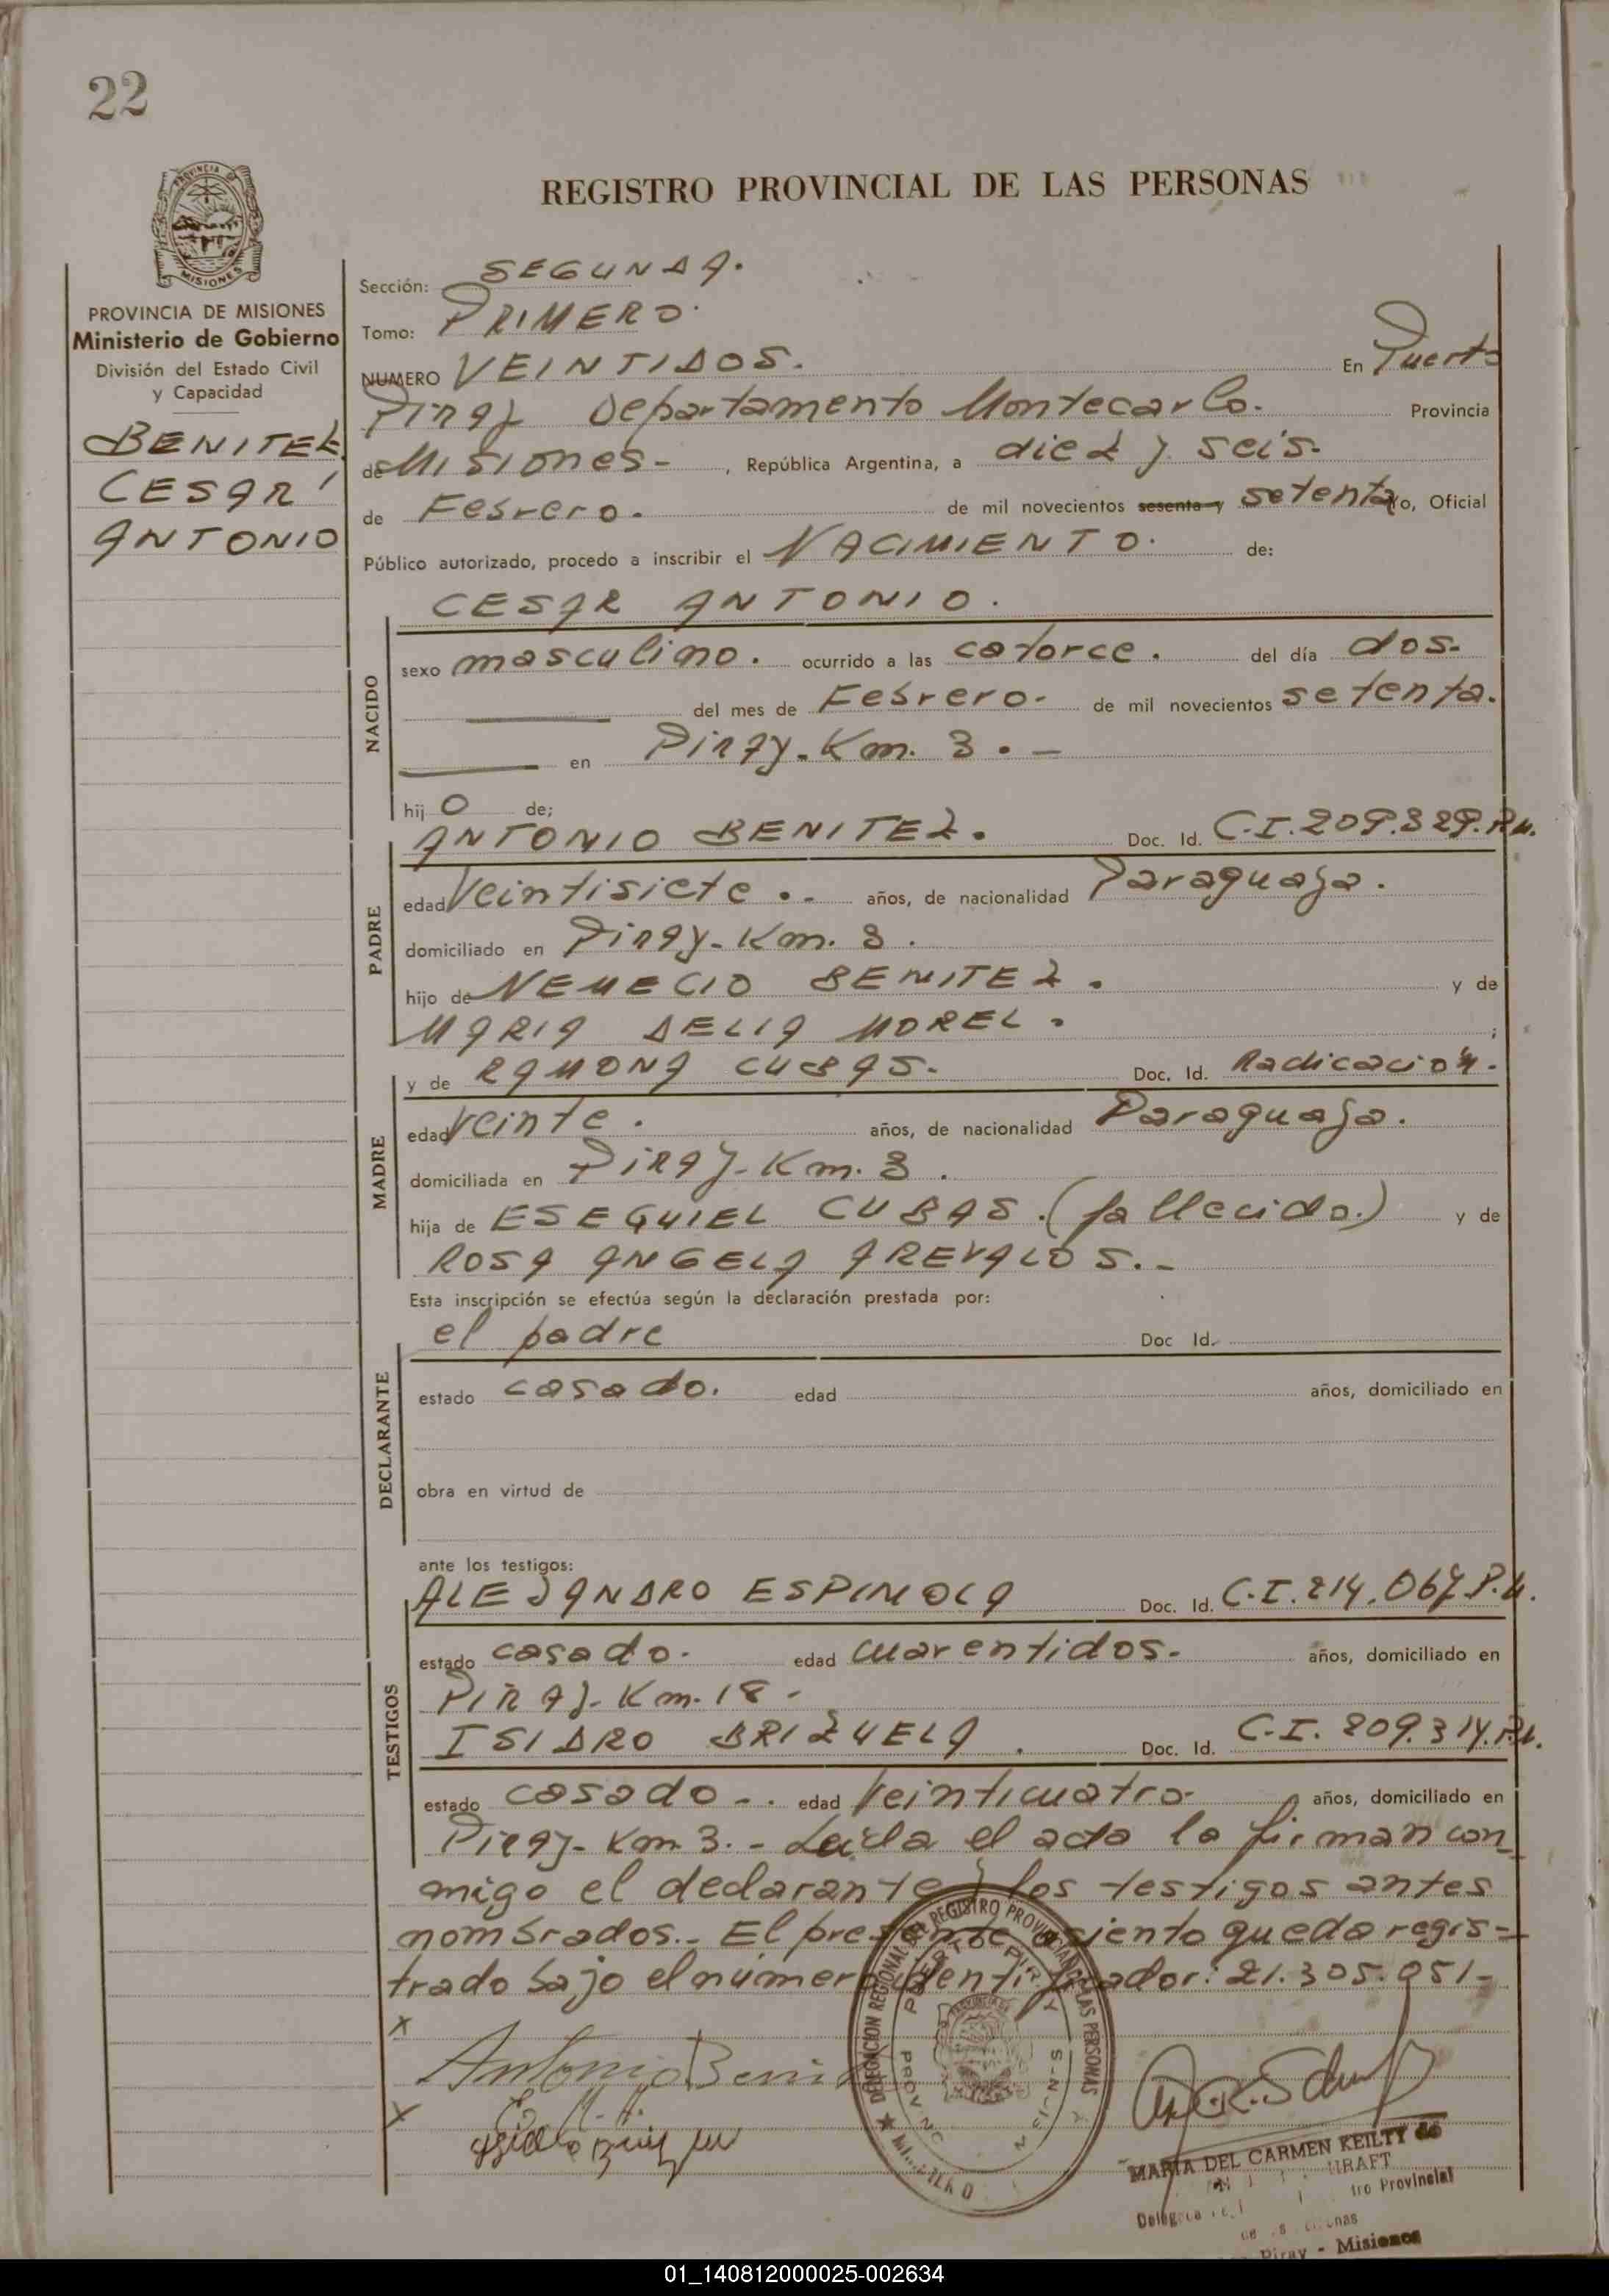 22
REGISTRO PROVINCIAL DE LAS PERSONAS
PROVINCIA DE MISIONES
Ministerio de Gobierno
División del Estado Civil
y Capacidad
BENITEZ
CESAR
ANTONIO
Sección: SEGUNDA.
Tomo: PRIMERO.
NUMERO VEINTIDOS. En Puerto
Piray Departamento Montecarlo. Provincia
de Misiones- , República Argentina, a diez y seis.
de Febrero. de mil novecientos sesenta y setenta yo, Oficial
Público autorizado, procedo a inscribir el NACIMIENTO. de:
CESAR ANTONIO.
NACIDO
sexo masculino. ocurrido a las catorce. del día dos-
del mes de Febrero- de mil novecientos setenta.
en Piray-Km. 3.-
hij o de;
PADRE
ANTONIO BENITEZ. Doc. Id. C.I.209.329.
edad Veintisiete.- años, de nacionalidad Paraguaya.
domiciliado en Piray-Km. 3.
hijo de NEMECIO BENITEZ. y de
MARIA DELIA MOREL. ;
MADRE
y de RAMONA CUBAS. Doc. Id. Radicación.
edad Veinte. años, de nacionalidad Paraguaya.
domiciliada en Piray-Km. 3.
hija de ESEQUIEL CUBAS.(fallecido.) y de
ROSA ANGELA AREVALOS.-
Esta inscripción se efectúa según la declaración prestada por:
DECLARANTE
el padre Doc Id.
estado casado. edad años, domiciliado en
obra en virtud de
ante los testigos:
TESTIGOS
ALEJANDRO ESPINOLA Doc. Id. C.I.214.067
estado casado. edad cuarentidos. años, domiciliado en
PIRAY-Km.18-
ISIDRO BRIZUELA. Doc. Id. C.I. 209.314.
estado casado-. edad Veinticuatro- años, domiciliado en
Piray-Km 3.- Leida el acta la firman con
migo el declarante y los testigos antes
nombrados.- El presente asiento queda regis=
trado bajo el número identificador: 21.305.051-
x
Antonio Beni
x
DELEGACION REGIONAL DEL REGISTRO PROVINCIAL DE LAS PERSONAS
PUERTO PIRAY
MARIA DEL CARMEN KEILTY de
Provincial
Piray - Misiones
01_140812000025-002634